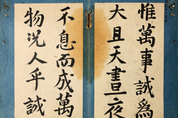 惟萬事誠爲
大且天晝一夜
不息而成萬
物況人乎誠